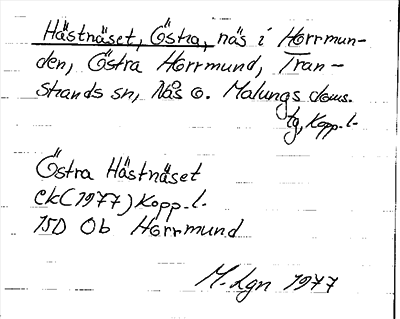 Hästnäset, Östra, näs i Horrmun-
den, Östra Horrmund, Tran-
strands sn, Nås o. Malungs doms.
tg, Kopp. l.
Östra Hästnäset
ek (1977) Kopp. l.
15D 0b Horrmund
M. Lgn 1977